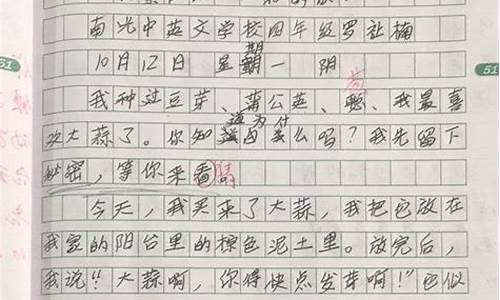 南光中英文学校四年级罗祉楠
10月12日 星期一 阴
我种过豆芽、蒲公英、葱、我最喜
欢大蒜了。你知道为什么吗?我先留下
秘密,等你来猜。
今天,我买来了大蒜,我把它放在
我家的阳台里的棕色泥土里。放完后,
我说"大蒜啊,你得快点发芽啊!"它似
51
51